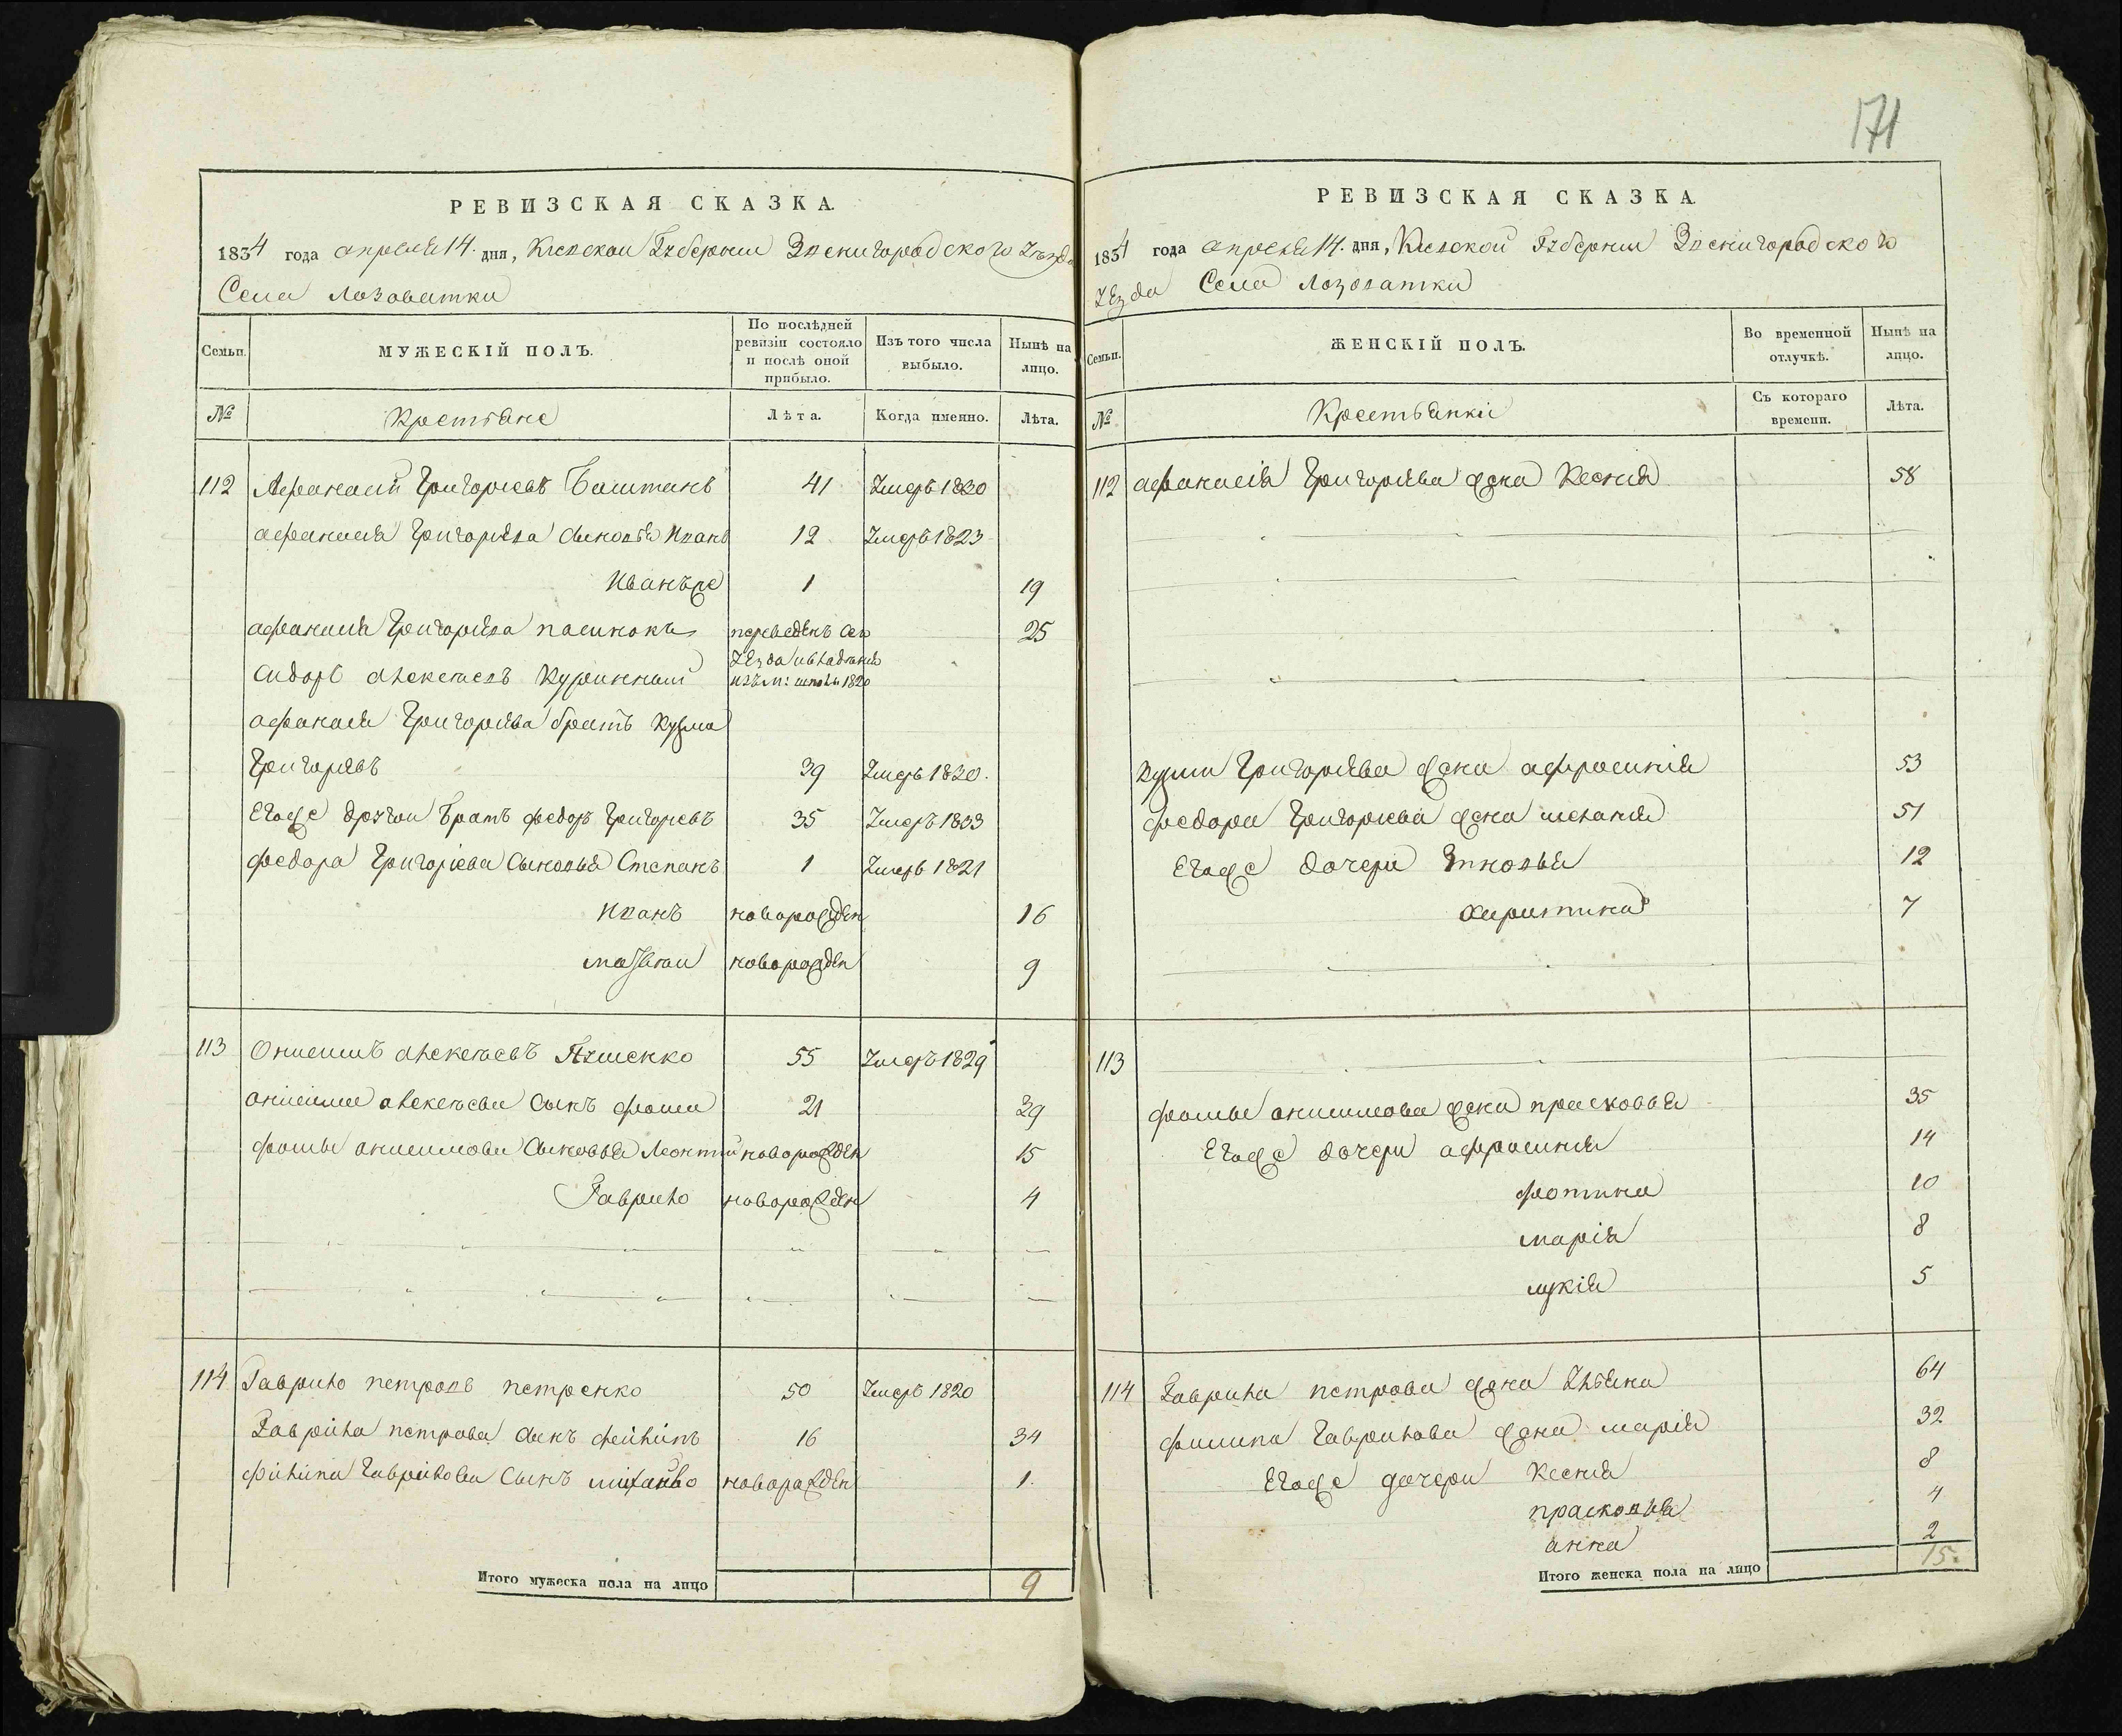 171
РЕВИЗСКАЯ СКАЗКА.
1834 года апреля 14. дня, Киевской Губернии Звенигородского Уезда
Села Лозоватки
Семьи.
МУЖЕСКІЙ ПОЛЪ.
По послѣдней ревизіи состояло и послѣ оной прибыло.
Изъ того числа выбыло.
Нынѣ на лицо.
№
Крестьяне
Лѣта.
Когда именно.
Лѣта.
112 Афанасий Григориевъ Баштанъ 41 Умеръ 1830
афанасия Григориева сыновья Иванъ 12 Умеръ 1823
Иванъже 1 19
афанасия Григориева пасинокъ переведенъ сего 25
Уезда
Сидоръ Алексеевъ изъ м: шполы 1820
афанасия Григориева братъ Кузма
Григориевъ 39 Умеръ 1830.
Егоже другои Братъ федоръ Григориевъ 35 Умеръ 1833
федора Григориева Сыновья Степанъ 1 Умеръ 1821
Иванъ новорожден 16
матвеи новорожден 9
113 Онисимъ Алексеевъ 55 Умеръ 1829
онисима алексеева Сынъ фома 21 39
фомы онисимова Сыновья Леонтий новорожден 15
Гаврило новорожден 4
114 Гаврило петровъ петренко 50 Умеръ 1820
Гаврила петрова сынъ филипъ 16 34
филипа Гаврилова Сынъ михайло новорожден 1.
Итого мужеска пола на лицо 9
РЕВИЗСКАЯ СКАЗКА
1834 года апреля 14. дня, Киевской Губернии Звенигородского
Уезда Села Лозоватки
Семьи.
ЖЕНСКІЙ ПОЛЪ.
Во временной отлучкѣ.
Нынѣ на лицо.
№
Крестьянки
Съ котораго времени.
Лѣта.
112 афанасия Григориева жена Ксения 58
Кузми Григориева жена афросиния 53
федора Григориева жена мелания 51
Егоже дочери 12
харитина 7
113
фомы онисимова жена прасковья 35
Егоже дочери афросиния 14
фотина 10
марія 8
лукія 5
114 Гаврила петрова жена Ульяна 64
филипа Гаврилова жена марія 32
Егоже дочери Ксения 8
прасковья 4
анна 2
Итого женска пола на лицо 15.